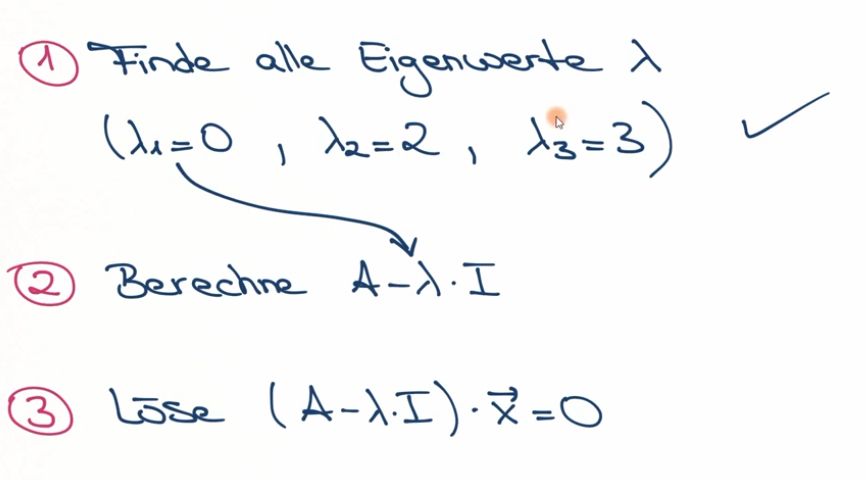 ① Finde alle Eigenwerte λ
(λ₁=0 , λ₂=2 , λ₃=3) ✓
② Berechne A-λ·I
③ Löse (A-λ·I)·x⃗=0